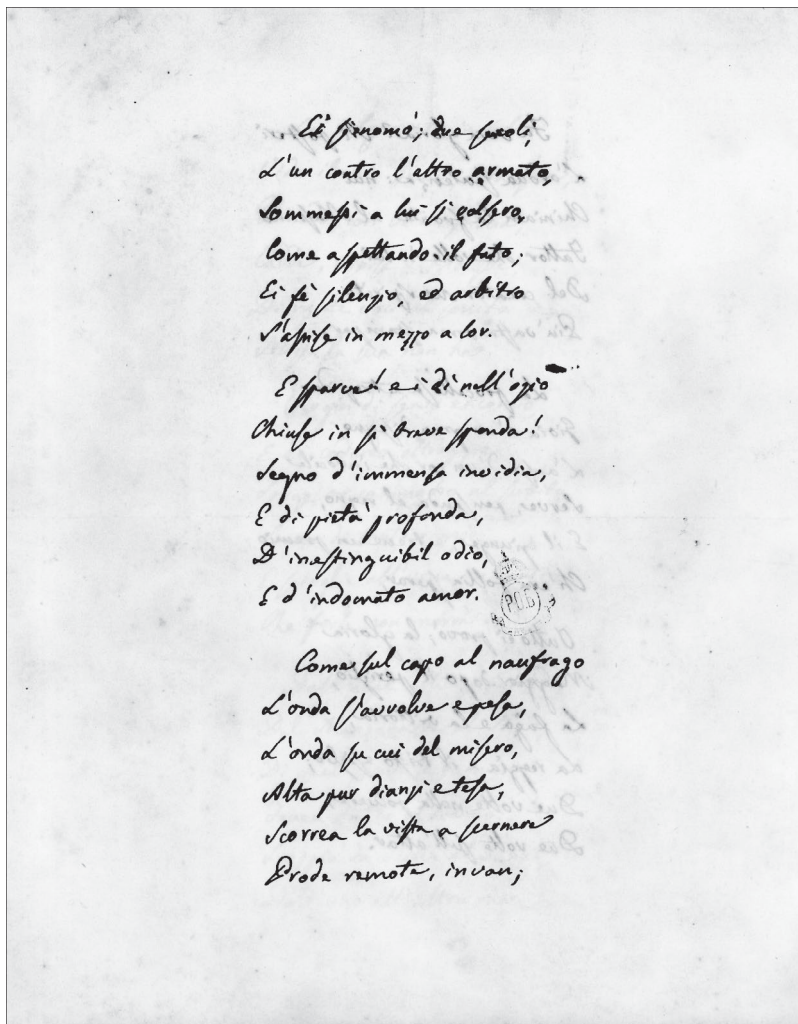 Ei si nomò; due secoli,
L'un contro l'altro armato,
Sommessi a lui si volsero,
Come aspettando il fato;
Ei fè silenzio, ed arbitro
S'assise in mezzo a lor.
E sparve! e i dì nell'ozio
Chiuse in sì breve sponda!
Segno d'immensa invidia,
E di pietà profonda,
D'inestinguibil odio,
E d'indomato amor.
P.O.B
Come sul capo al naufrago
L'onda s'avvolve e pesa,
L'onda su cui del misero,
Alta pur dianzi e tesa,
Scorrea la vista a scernere
Prode remote, invan;